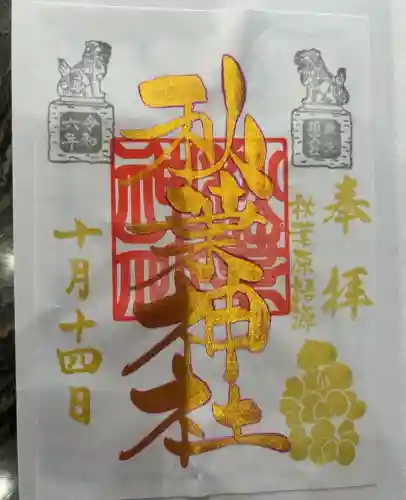 奉拝
秋葉原語源
秋葉神社
令和
六年
十月十四日